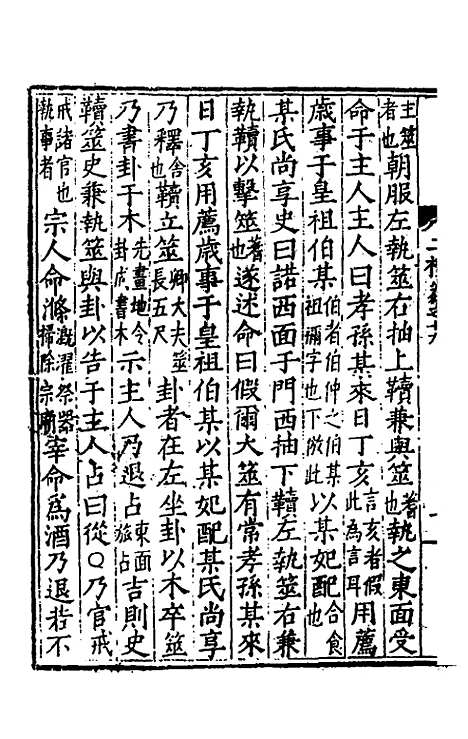 主筮者也朝服左執筮右抽上韇兼與筮蓍也執之東面受
命于主人主人曰孝孫某來日丁亥言亥者假此為言耳用薦
歲事于皇祖伯某伯者伯仲之伯某祖禰字也下倣此以某妃配合食也
某氏尚享史曰諾西面于門西抽下韇左執筮右兼
執韇以擊筮蓍也遂述命曰假爾大筮有常孝孫某來
日丁亥用薦歲事于皇祖伯某以某妃配某氏尚享
乃釋舍也韇立筮卿大夫筮長五尺卦者在左坐卦以木卒筮
乃書卦于木先畫地今卦成書木示主人乃退占東面旅占吉則史
韇筮史兼執筮與卦以告于主人占曰從○乃官戒
戒諸官也執事者宗人命滌溉濯祭器掃除宗廟宰命為酒乃退若不